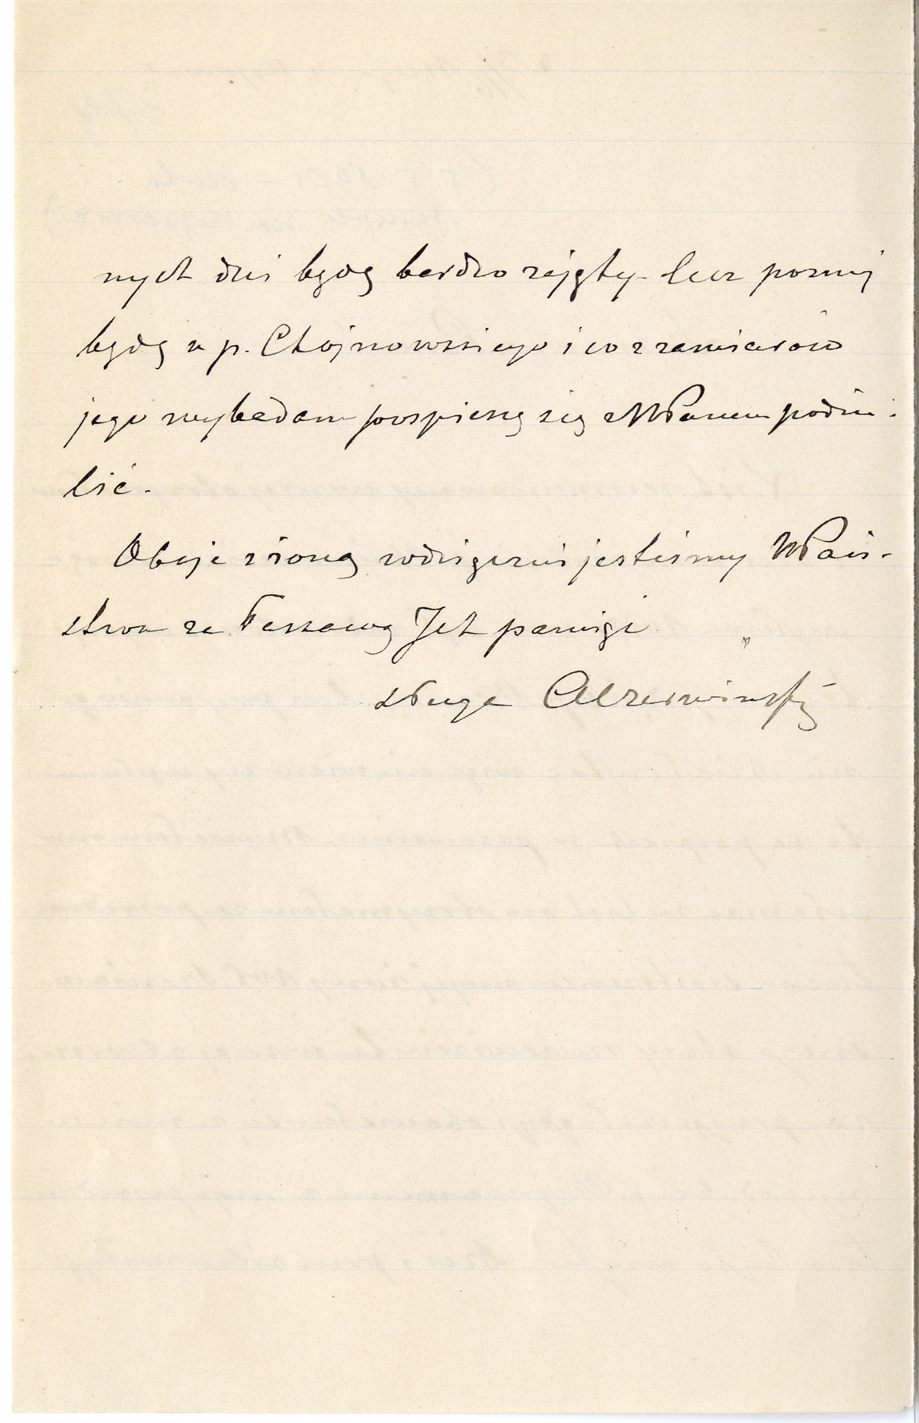 nych dni będę bardzo zajęty lecz poźniej
będę u p. Chojnowskiego i co z zamiarów
jego wybadam pospieszę się z WPanem podzie-
lić.
Oboje z żoną wdzięczni jesteśmy WPań-
stwu za łaskawą Ich pamięć
sługa